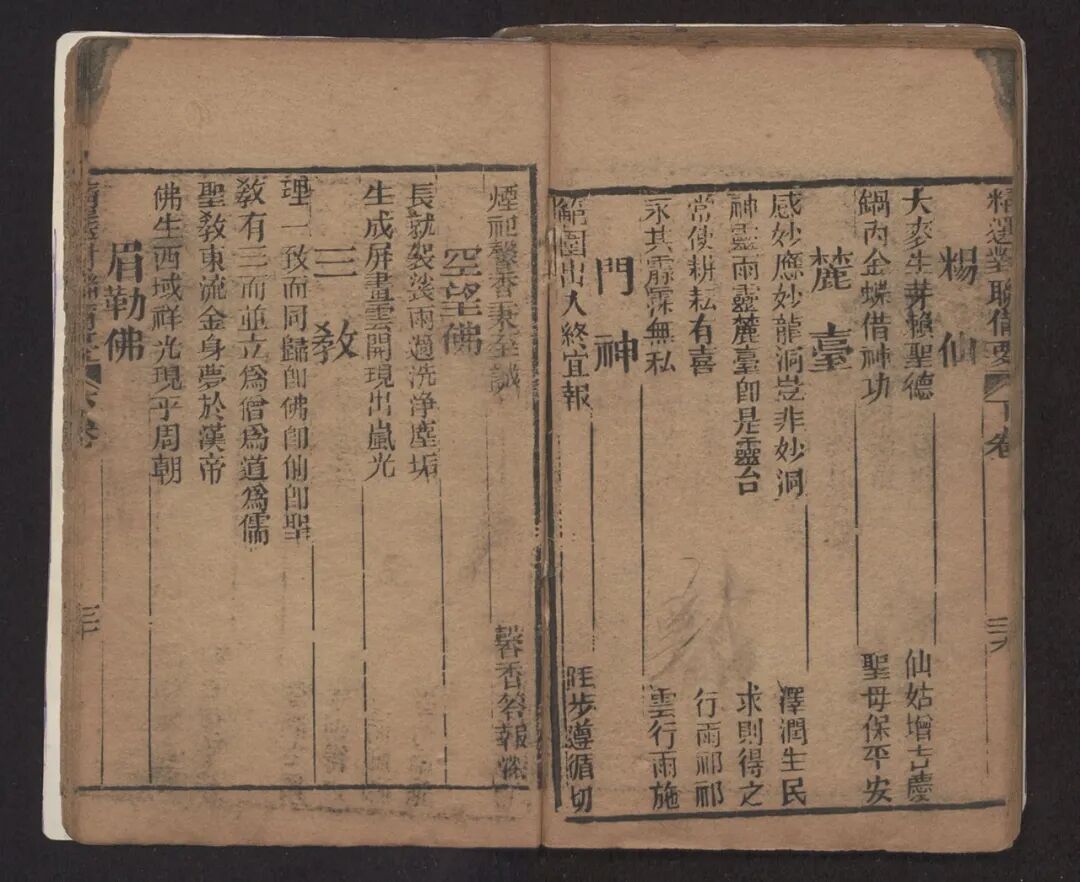 精選對聯備要 下卷
仙
大麥生芽賴聖德 仙姑增吉慶
鍋內金蝶借神功 聖母保平安
麓臺
感妙應妙龍洞豈非妙洞 澤潤生民
神靈雨靈麓臺即是靈台 求則得之
常使耕耘有喜 行雨祁祁
永其霢霂無私 雲行雨施
門神
範圍出入終宜報 跬步遵循切
煙祀馨香秉至誠 馨香答報
空望佛
長就袈裟雨過洗淨塵垢
生成屏畫雲開現出嵐光
三教
理一致而同歸即佛即仙即聖
教有三而並立爲僧爲道爲儒
聖教東流金身夢於漢帝
佛生西域祥光現乎周朝
眉勒佛